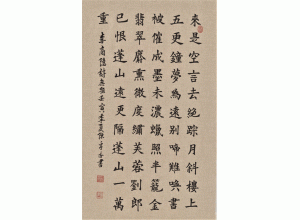 來是空言去絕踪月斜樓上
五更鐘夢為遠別啼難喚書
被催成墨未濃蠟照半籠金
翡翠麝熏微度繡芙蓉劉郎
已恨蓬山遠更隔蓬山一萬
重
李商隱詩無題壬寅書